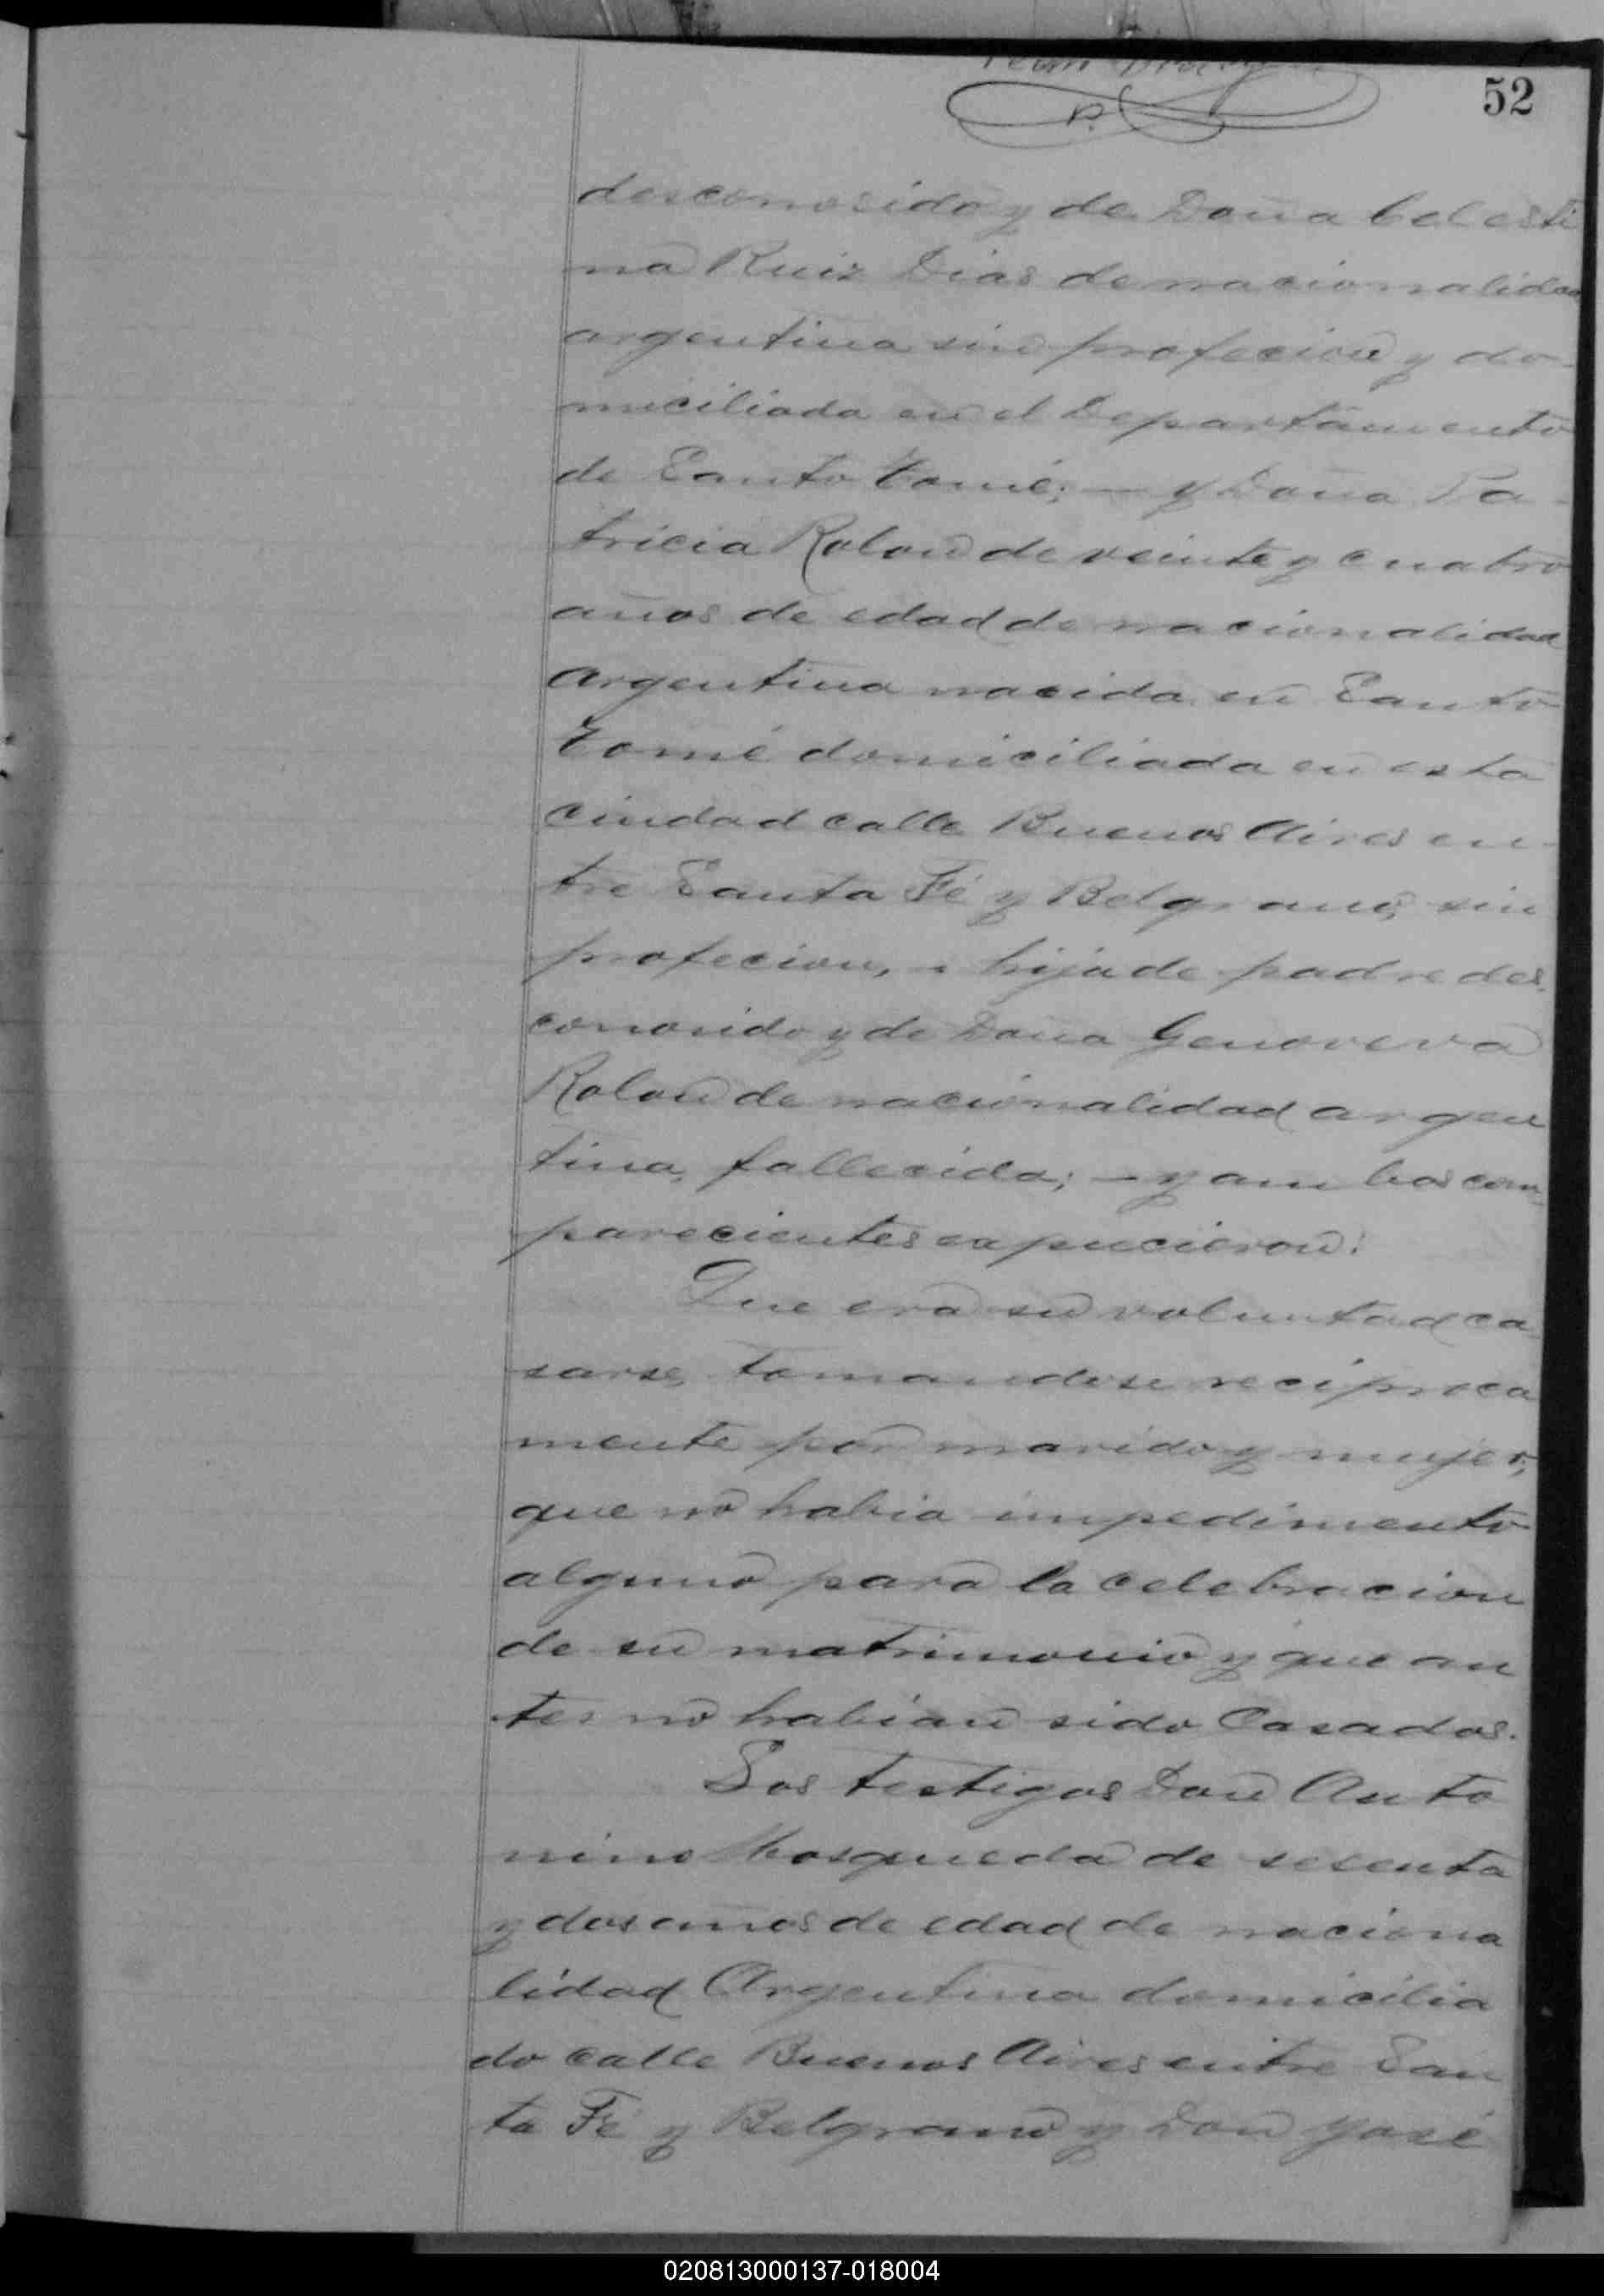 52
desconosido y de Doña Celesti
na Ruiz Dias de nacionalidad
argentina sin profecion y do-
miciliada en el Departamento
de Santo Tomé; — y Doña Pa-
tricia Rolon de veinte y cuatro
años de edad de nacionalidad
Argentina nacida en Santo
Tomé domiciliada en esta
ciudad calle Buenos Aires en-
tre Santa Fé y Belgrano, sin
profecion, hija de padre des-
conosido y de Doña Genoveva
Rolon de nacionalidad argen
tina, fallecida; — y ambos com-
parecientes expucieron:
Que era su voluntad ca-
sarse, tomandose reciproca
mente por marido y mujer;
que no habia impedimento
alguno para la celebracion
de su matrimonio y que an
tes no habian sido Casados.
Los testigos Don Anto
nino Mosqueda de sesenta
y dos años de edad de naciona
lidad Argentina domicilia
do calle Buenos Aires entre San
ta Fé y Belgrano y Don José
020813000137-018004